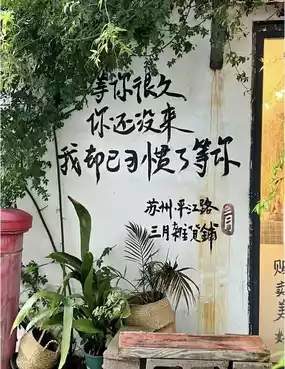 等你很久
你还没来
我却已习惯了等你
苏州·平江路
三月雜貨鋪
三月
贩卖美好